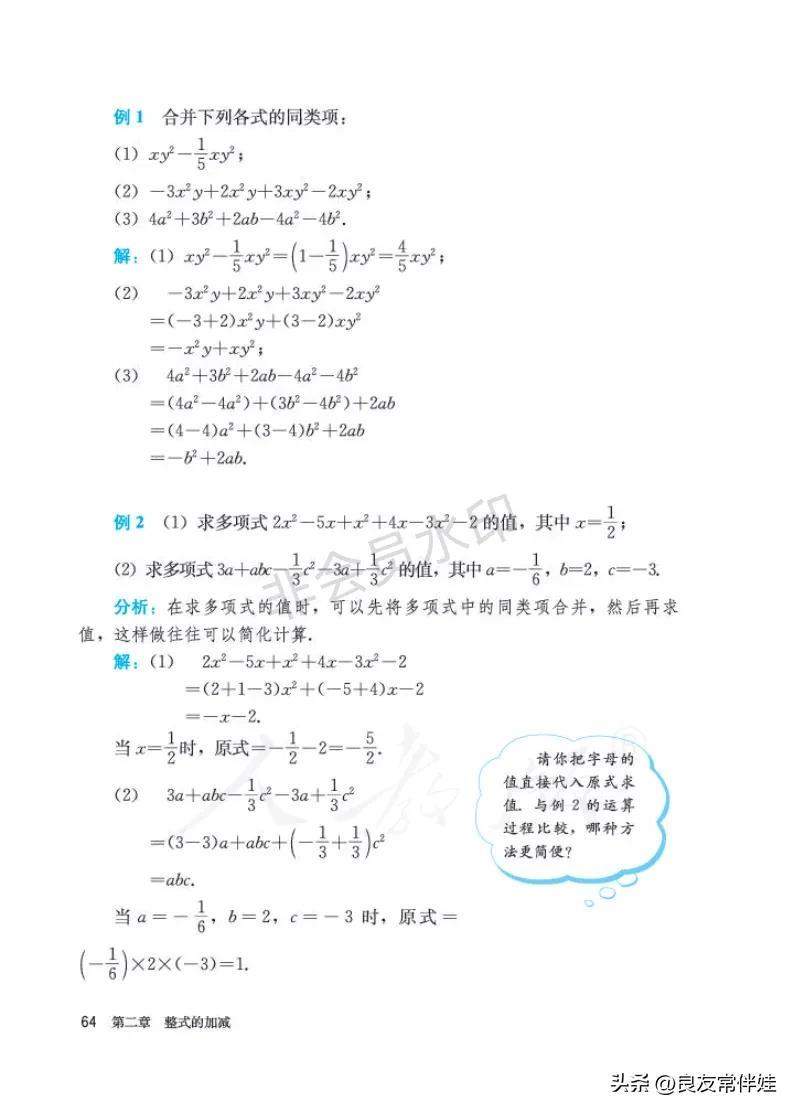 例 1 合并下列各式的同类项：
(1) xy²－1/5xy²；
(2) －3x²y＋2x²y＋3xy²－2xy²；
(3) 4a²＋3b²＋2ab－4a²－4b².
解：(1) xy²－1/5xy²＝(1－1/5)xy²＝4/5xy²；
(2) －3x²y＋2x²y＋3xy²－2xy²
＝(－3＋2)x²y＋(3－2)xy²
＝－x²y＋xy²；
(3) 4a²＋3b²＋2ab－4a²－4b²
＝(4a²－4a²)＋(3b²－4b²)＋2ab
＝(4－4)a²＋(3－4)b²＋2ab
＝－b²＋2ab.
例 2 (1) 求多项式 2x²－5x＋x²＋4x－3x²－2 的值，其中 x＝1/2；
(2) 求多项式 3a＋abc－1/3c²－3a＋1/3c² 的值，其中 a＝－1/6，b＝2，c＝－3.
分析：在求多项式的值时，可以先将多项式中的同类项合并，然后再求
值，这样做往往可以简化计算.
解：(1) 2x²－5x＋x²＋4x－3x²－2
＝(2＋1－3)x²＋(－5＋4)x－2
＝－x－2.
当 x＝1/2时，原式＝－1/2－2＝－5/2.
(2) 3a＋abc－1/3c²－3a＋1/3c²
＝(3－3)a＋abc＋(－1/3＋1/3)c²
＝abc.
当 a＝－1/6，b＝2，c＝－3 时，原式＝
(－1/6)×2×(－3)＝1.
请你把字母的
值直接代入原式求
值. 与例 2 的运算
过程比较，哪种方
法更简便？
64 第二章 整式的加减
非会易水印
头条 @良友常伴娃